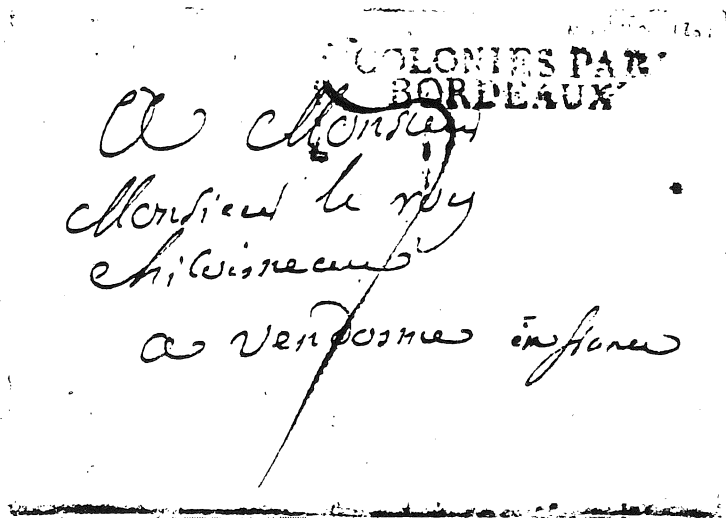 COLONIES PAR
BORDEAUX
A Monsieur
Monsieur le roy
a vendosme en france